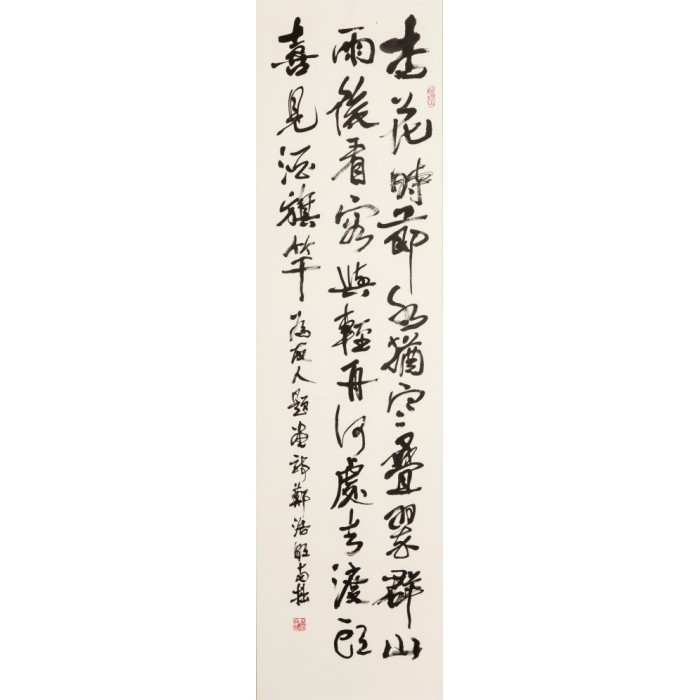 杏花時節水猶寒疊翠群山
雨後看容與輕舟何處去渡頭
喜見酒旗竿
為友人題畫詩鄭浩